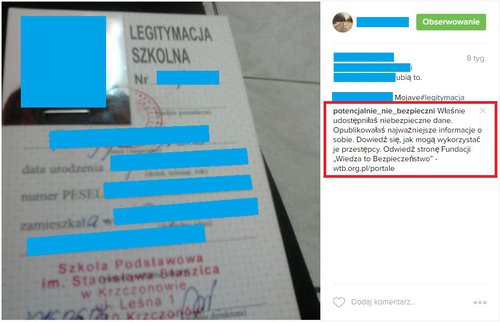 LEGITYMACJA
SZKOLNA
Nr
data urodzenia
numer PESEL
zamieszkała
Szkoła Podstawowa
im. Stanisława Staszica
w Krzczonowie
ul. Leśna 1
Obserwowanie
8 tyg.
ubią to.
Mojave#legitymacja
potencjalnie_nie_bezpieczni Właśnie
udostępniłaś niebezpieczne dane.
Opublikowałaś najważniejsze informacje o
sobie. Dowiedź się, jak mogą wykorzystać
je przestępcy. Odwiedź stronę Fundacji
„Wiedza to Bezpieczeństwo" -
wtb.org.pl/portale
Dodaj komentarz...